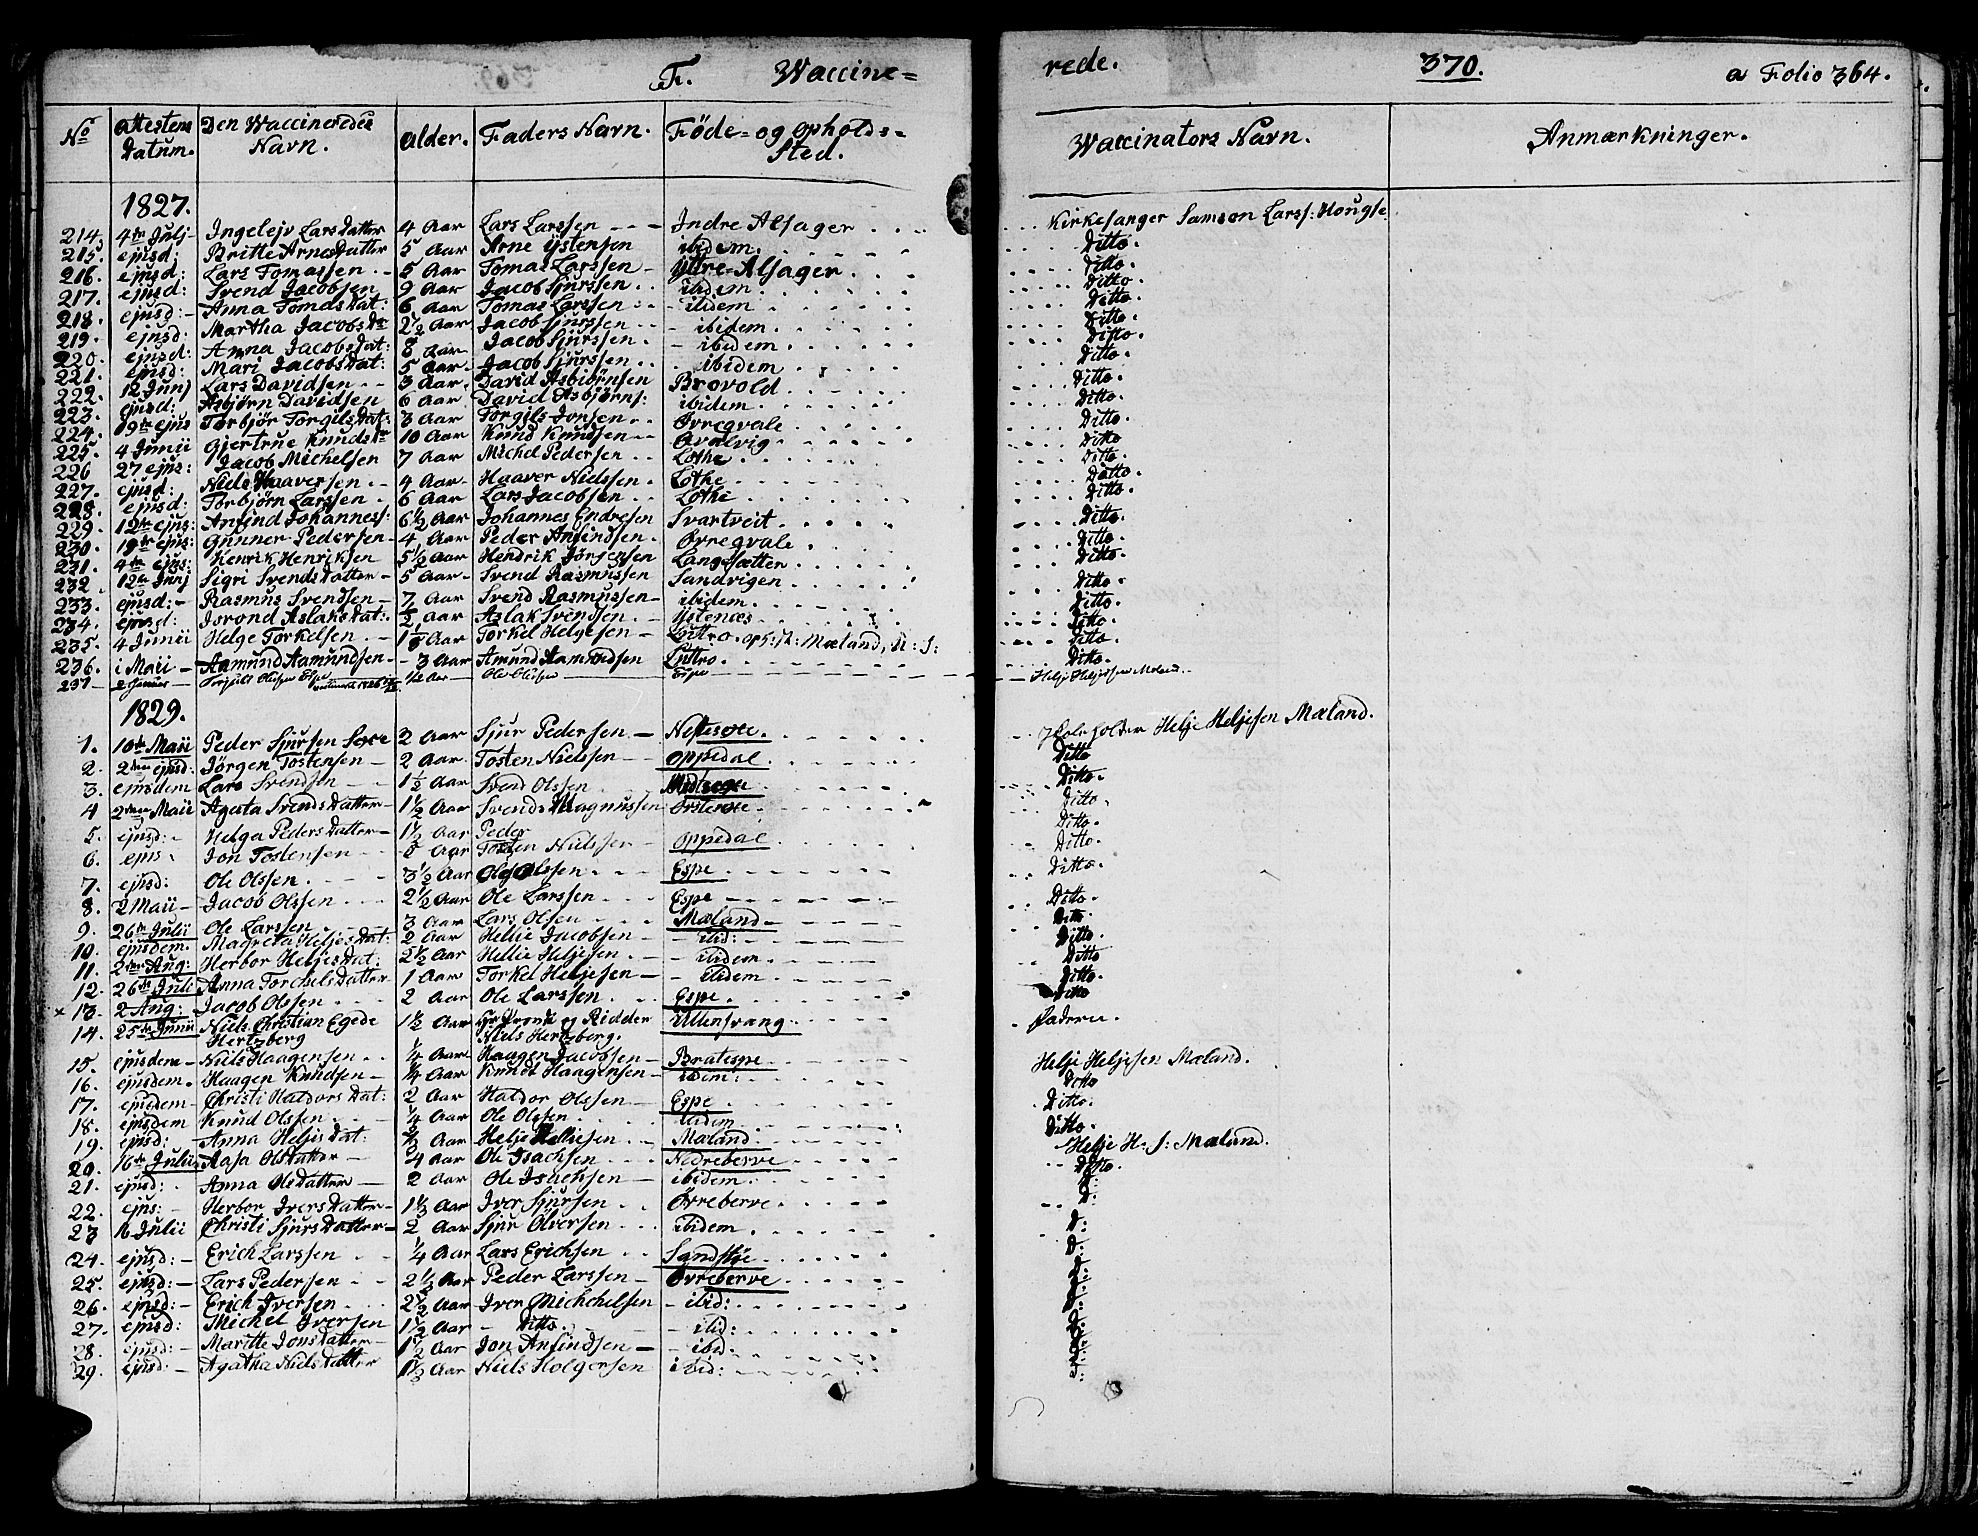 F. Waccine= rede. 370. a Folio 364.
No Attestens Datum. Den Waccineredes Navn. Alder. Faders Navn. Føde- og opholds= Sted. Waccinators Navn. Anmærkninger.
1827.
214. 4de Julj Ingelejv LarsDatter 4 Aar Lars Larssen Indre Alsager Kirkesanger Samson Larss: Hougse
215. ejusd: Britte ArnesDatter 5 Aar Arne Ystensen ibidem. Ditto.
216. ejusd: Lars Tomassen 5 Aar Tomas Larssen Yttre-Alsager Ditto.
217. ejusd: Svend Jacobsen 9 Aar Jacob Sjurssen ibidem Ditto.
218. ejusd: Anna TomasDat: 6 Aar Tomas Larssen ibidem Ditto.
219. ejusd: Martha JacobsDr 2½ Aar Jacob Sjurssen ibidem Ditto.
220. ejusd: Anna JacobsDat: 8 Aar Jacob Sjurssen ibidem Ditto.
221. ejusd: Mari JacobsDat: 5 Aar Jacob Sjurssen ibidem Ditto.
222. 12 Junj Lars Davidsen 3 Aar David Asbiørnsen Brovold Ditto.
223. ejusd: Asbjørn Davidsen 6 Aar David Asbjørns: ibidem Ditto.
224. 19de ejus Torbjør TorgilsDat: 3 Aar Torgils Jonsen Øvregvale Ditto.
225. 4 Junii Gjertrue Knudsdr 10 Aar Knud Knudsen Qvalvig Ditto.
226 27 ejus: Jacob Michelsen 7 Aar Michel Pedersen Lothe Ditto.
227. ejusd: Niels Haaversen 4 Aar Haaver Nielssen Lothe Ditto.
228. ejusd: Torbjørn Larssen 6 Aar Lars Jacobsen Lothe Ditto.
229. 12te ejus: Anfind Johanness: 6½ Aar Johannes Endresen Svartveit Ditto.
230. 19de ejus: Gunner Pedersen 4 Aar Peder Anfindsen Øvregvale Ditto.
231. 4de ejus: Henrik Henriksen 5½ Aar Hendrik Jørgensen Langesætter Ditto.
232. 12te Junj Sigri SvendsDatter 5 Aar Svend Rasmussen Sandvigen Ditto.
233. ejusd: Rasmus Svendsen 7 Aar Svend Rasmussen ibidem Ditto.
234. ejusd: Isrond AslaksDat: ½ Aar Aslak Svendsen Ystenæs Ditto.
235. 4 Junii Helge Torkelsen 1 Aar Torkel Helgesen Luttro. Mæland, Ditto.
236. 1 Maii Aamund Aamundsen 3 Aar Amund Aamundsen Luttro Ditto.
237 Espe ½ Aar Ole Olsen Espe Helje Heljessen Mæland
1829.
1. 10de Maii Peder Sjursen 2 Aar Sjur Pedersen Skoleholder Helje Heljesen Mæland.
2. 2den ejusd: Jørgen Tostensen 2 Aar Tosten Nielssen Oppedal Ditto
3. ejusdem Lars Svendsen 1½ Aar Svend Olssen Ditto.
4 2den Maii Agata SvendsDatter 1½ Aar Svends Magnussen Ditto.
5. ejusd: Helga PedersDatter 1½ Aar Peder Ditto.
6. ejus. Jon Tostensen Aar Tosten Nielssen Oppedal Ditto.
7. ejusd: Ole Olssen 3½ Aar Ole Olssen Espe Ditto.
8. 2 Maii Jacob Olssen 2½ Aar Ole Larssen Espe Ditto.
9. 26de Julii Ole Larssen 3 Aar Lars Olsen Mæland Ditto.
10. ejusdem. Magreta HeljesDat: 2 Aar Hellie Jacobsen ibid: Ditto.
11. 2den Aug: Herbor HeljesDat: 2½ Aar Hellie Heljesen ibidem Ditto
12. 26de Juli Anna TorchelsDatter 1 Aar Torkel Heljesen ibidem Ditto.
× 13. 2 Aug: Jacob Olssen 2 Aar Ole Larssen Espe. Ditto
14. 25de Junii Niels Christian Egede Hertzberg 1½ Aar Hr Provst og Ridder Niels Hertzberg. Ullensvang Faderen.
15. ejusdem Niels Haagensen ¼ Aar Haagen Jacobsen Bratespe Helje Heljesen Mæland.
16. ejusdem. Haagen Knudsen ¼ Aar Knudt Haagensen ibidem: Ditto
17. ejusdem Christi HaldorsDat: 2 Aar Haldor Olssen Espe Ditto.
18. ejusdem Knud Olssen ¼ Aar Ole Olssen ibidem Ditto.
19. ejusd: Anna HeljesDat: Aar Helje Helliesen Mæland Helje H. S: Mæland.
20. 16de Julii Aasa OlsDatter 4 Aar Ole Isachsen Nedreberve Ditto.
21. ejusd: Anna OlsDatter 2 Aar Ole Isachsen ibidem D:
22. ejus: Herbor IversDatter 1½ Aar Iver Sjursen Øvreberve D:
23 16 Julii Christi SjursDatter 2 Aar Sjur Olversen ibidem D:
24. ejusd: Erich Larssen ¼ Aar Lars Erichsen Sandstøe D:
25. ejusd: Lars Pedersen 2½ Aar Peder Larssen Øvreberve D:
26. ejusd: Erich Iversen 2½ Aar Iver Michchelsen ibid: D:
27. ejusd: Michel Iversen 1½ Aar Ditto. ibid: D:
28. ejusd: Maritte JonsDatter 1½ Aar Jon Anfindsen ibid: D:
29. ejusd: Agatha NielsDatter 1½ Aar Niels Holgersen ibid: D: